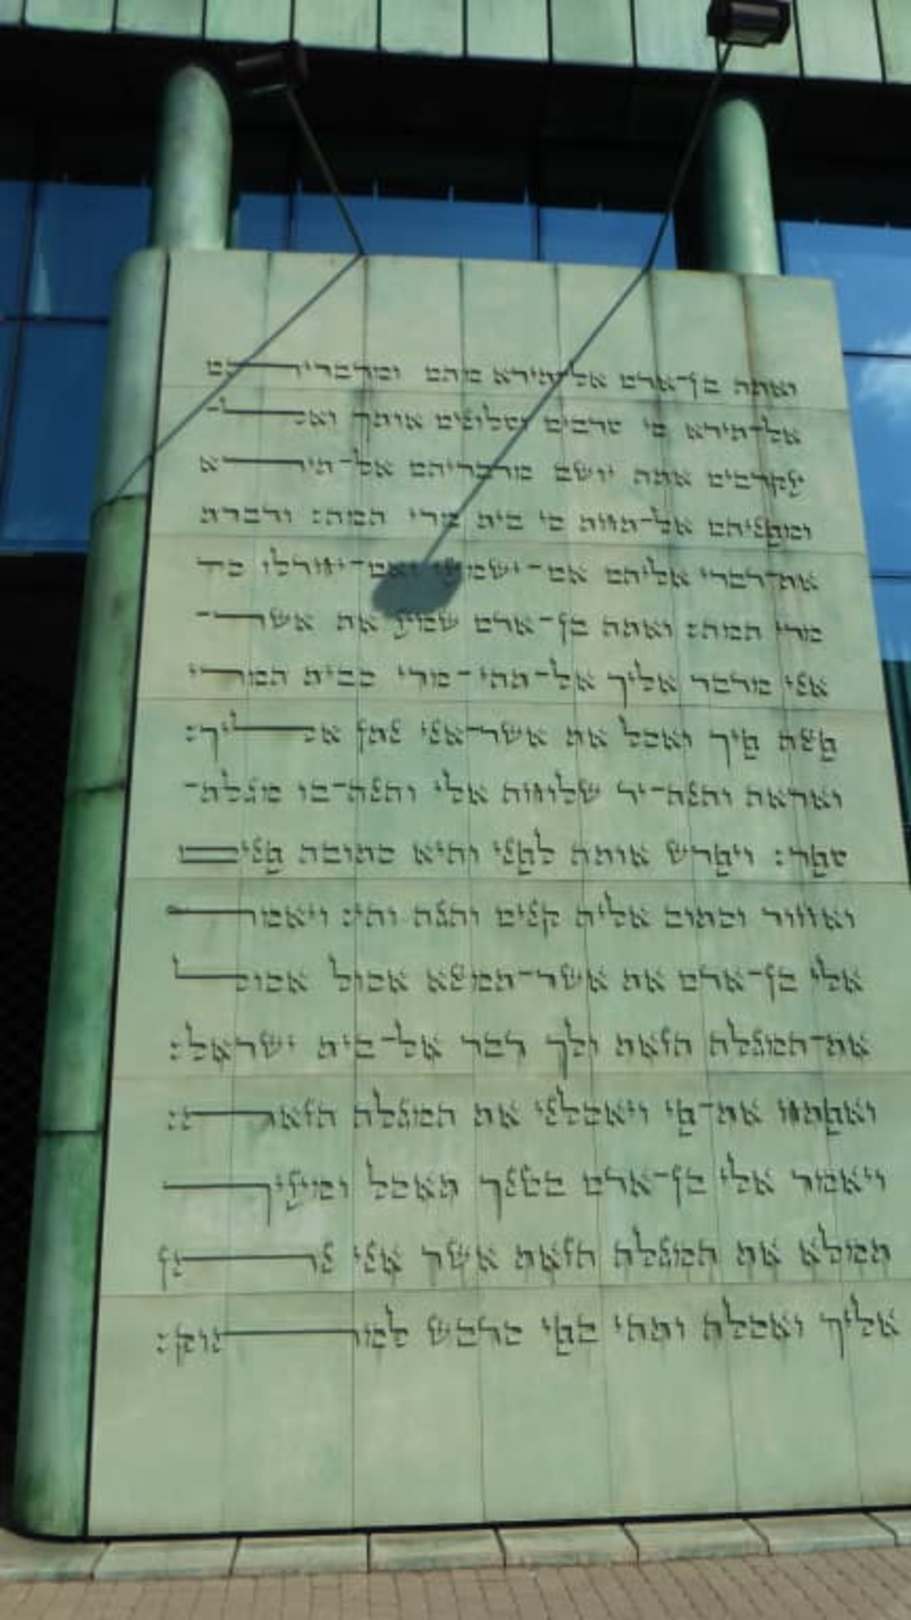 ואתה בן־אדם אל־תירא מהם ומדבריהם
אל־תירא כי סרבים וסלונים אותך ואל־
עקרבים אתה יושב מדבריהם אל־תירא
ומפניהם אל־תחת כי בית מרי המה: ודברת
את־דברי אליהם אם־ישמעו ואם־יחדלו כי
מרי המה: ואתה בן־אדם שמע את אשר־
אני מדבר אליך אל־תהי־מרי כבית המרי
פצה פיך ואכל את אשר־אני נתן אליך:
ואראה והנה־יד שלוחה אלי והנה־בו מגלת־
ספר: ויפרש אותה לפני והיא כתובה פנים
ואחור וכתוב אליה קנים והגה והי: ויאמר
אלי בן־אדם את אשר־תמצא אכול אכול
את־המגלה הזאת ולך דבר אל־בית ישראל:
ואפתח את־פי ויאכלני את המגלה הזאת:
ויאמר אלי בן־אדם בטנך תאכל ומעיך
תמלא את המגלה הזאת אשר אני נתן
אליך ואכלה ותהי בפי כדבש למתוק: